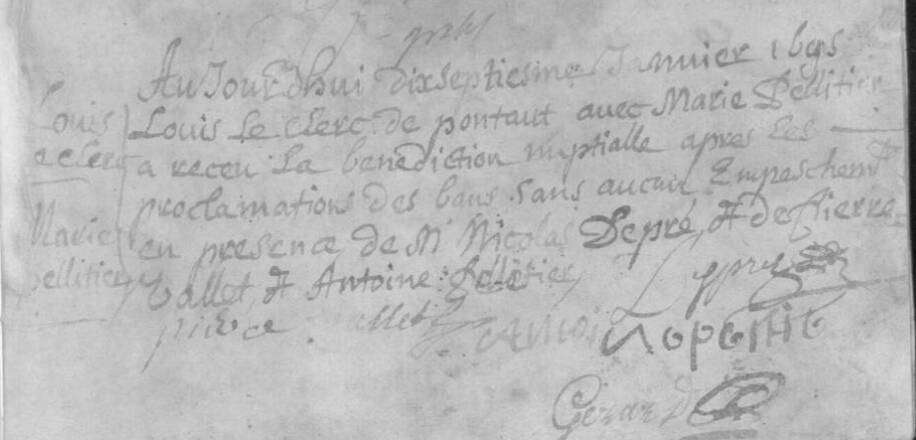 AuJourdhui dixseptiesme Janvier
Louis Le clerc de pontaut avec Marie Pellitier
a receu La benediction nuptialle apres Les
proclamations des bans sans aucun Empeschemt
en presence de Mr Nicolas Depré, & de Pierre
Vallet, & Antoine Peletier
Louis
Le clerc
Marie
pellitier
Gerard